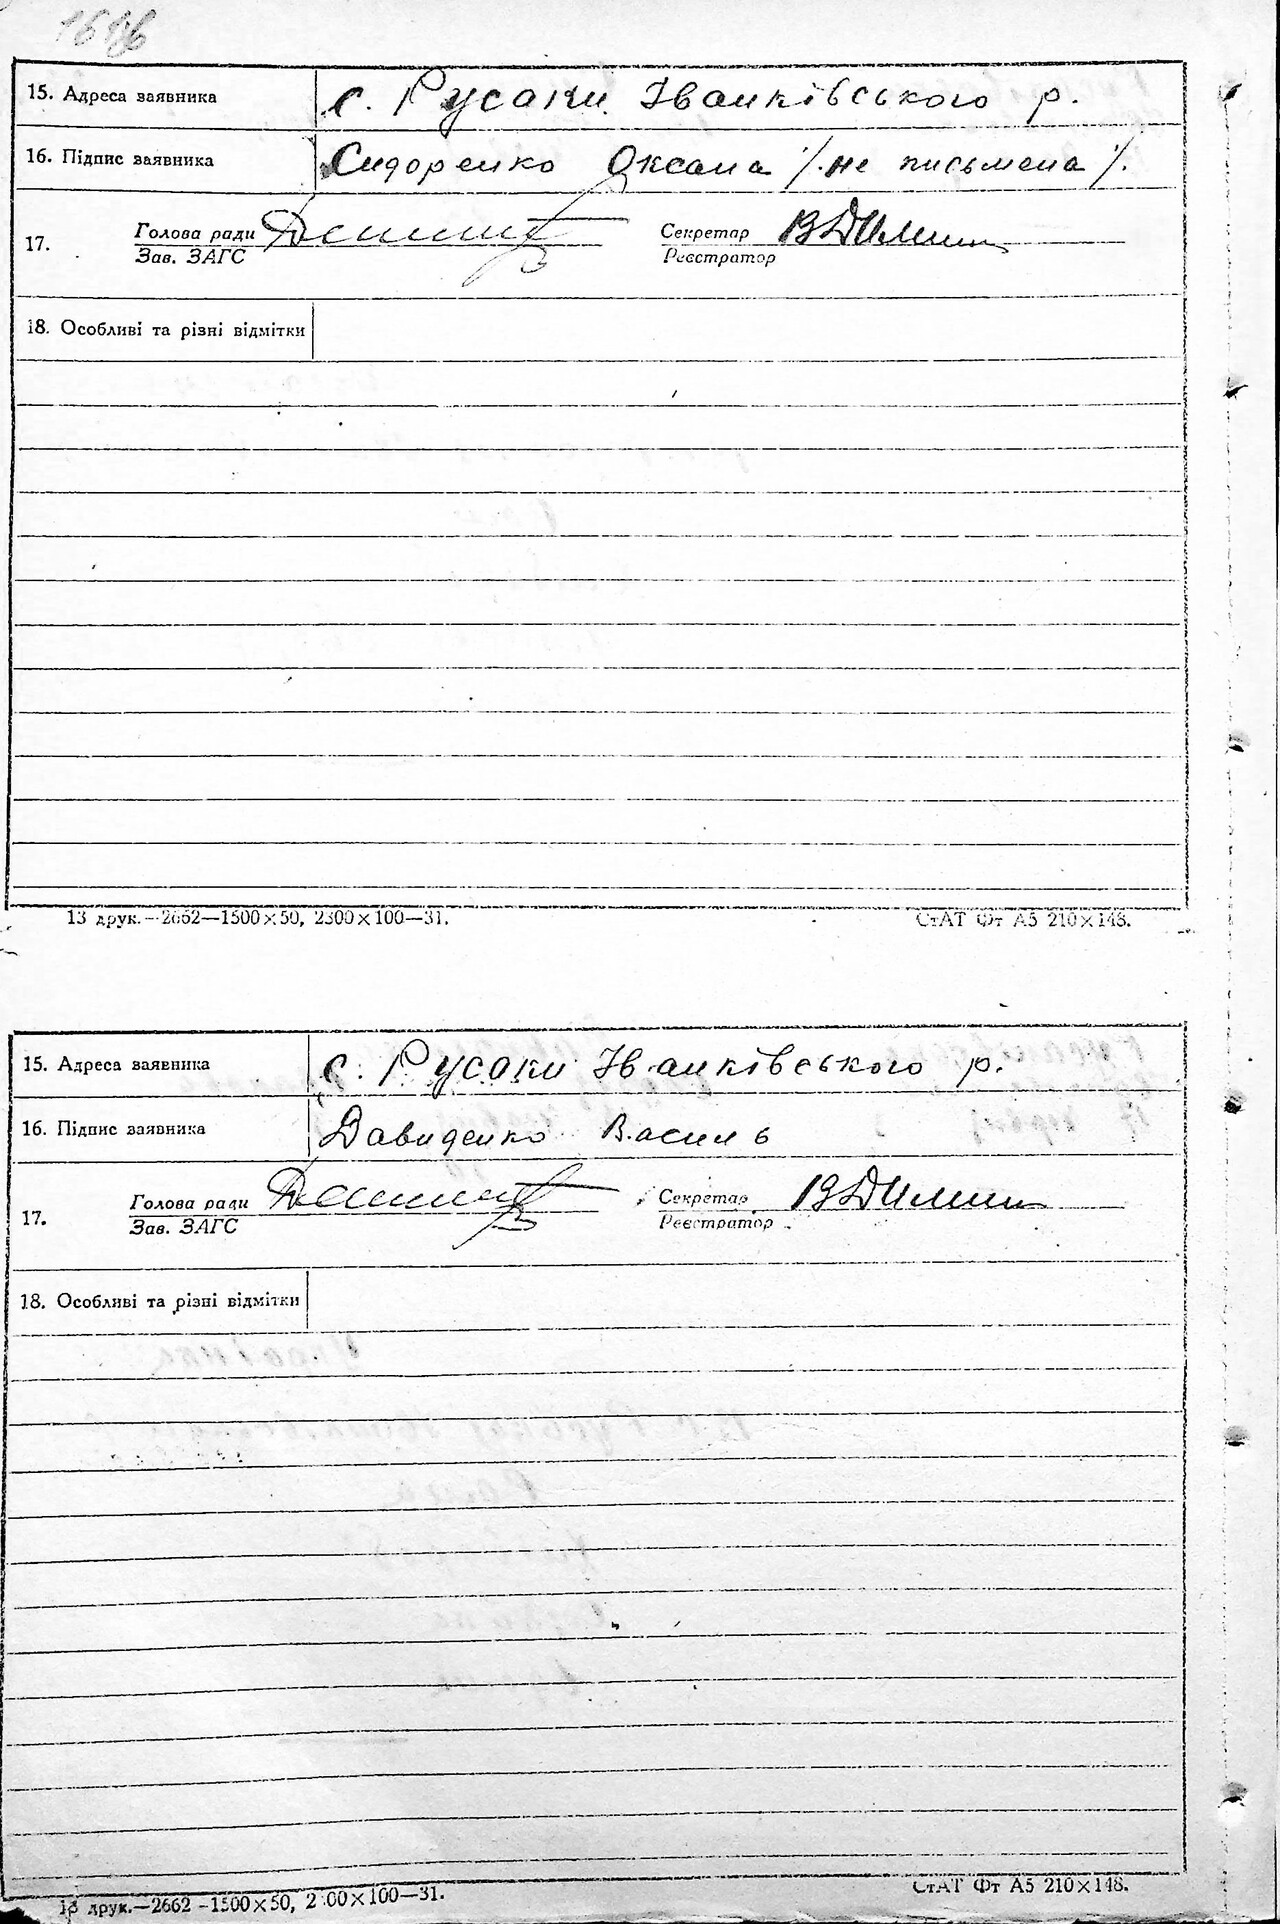 15. Адреса заявника с. Русаки Іванківського р.
16. Підпис заявника Сидоренко Оксана /. не письмена /.
17. Голова ради Секретар
Зав. ЗАГС Реєстратор
18. Особливі та різні відмітки
13 друк.—2662—1500×50, 2300×100—31. СтАТ Фт А5 210×148.
15. Адреса заявника с. Русаки Іванківського р.
16. Підпис заявника Давиденко Василь
17. Голова ради Секретар
Зав. ЗАГС Реєстратор
18. Особливі та різні відмітки
13 друк.—2662 -1500×50, 2 00×100—31. СтАТ Фт А5 210×148.